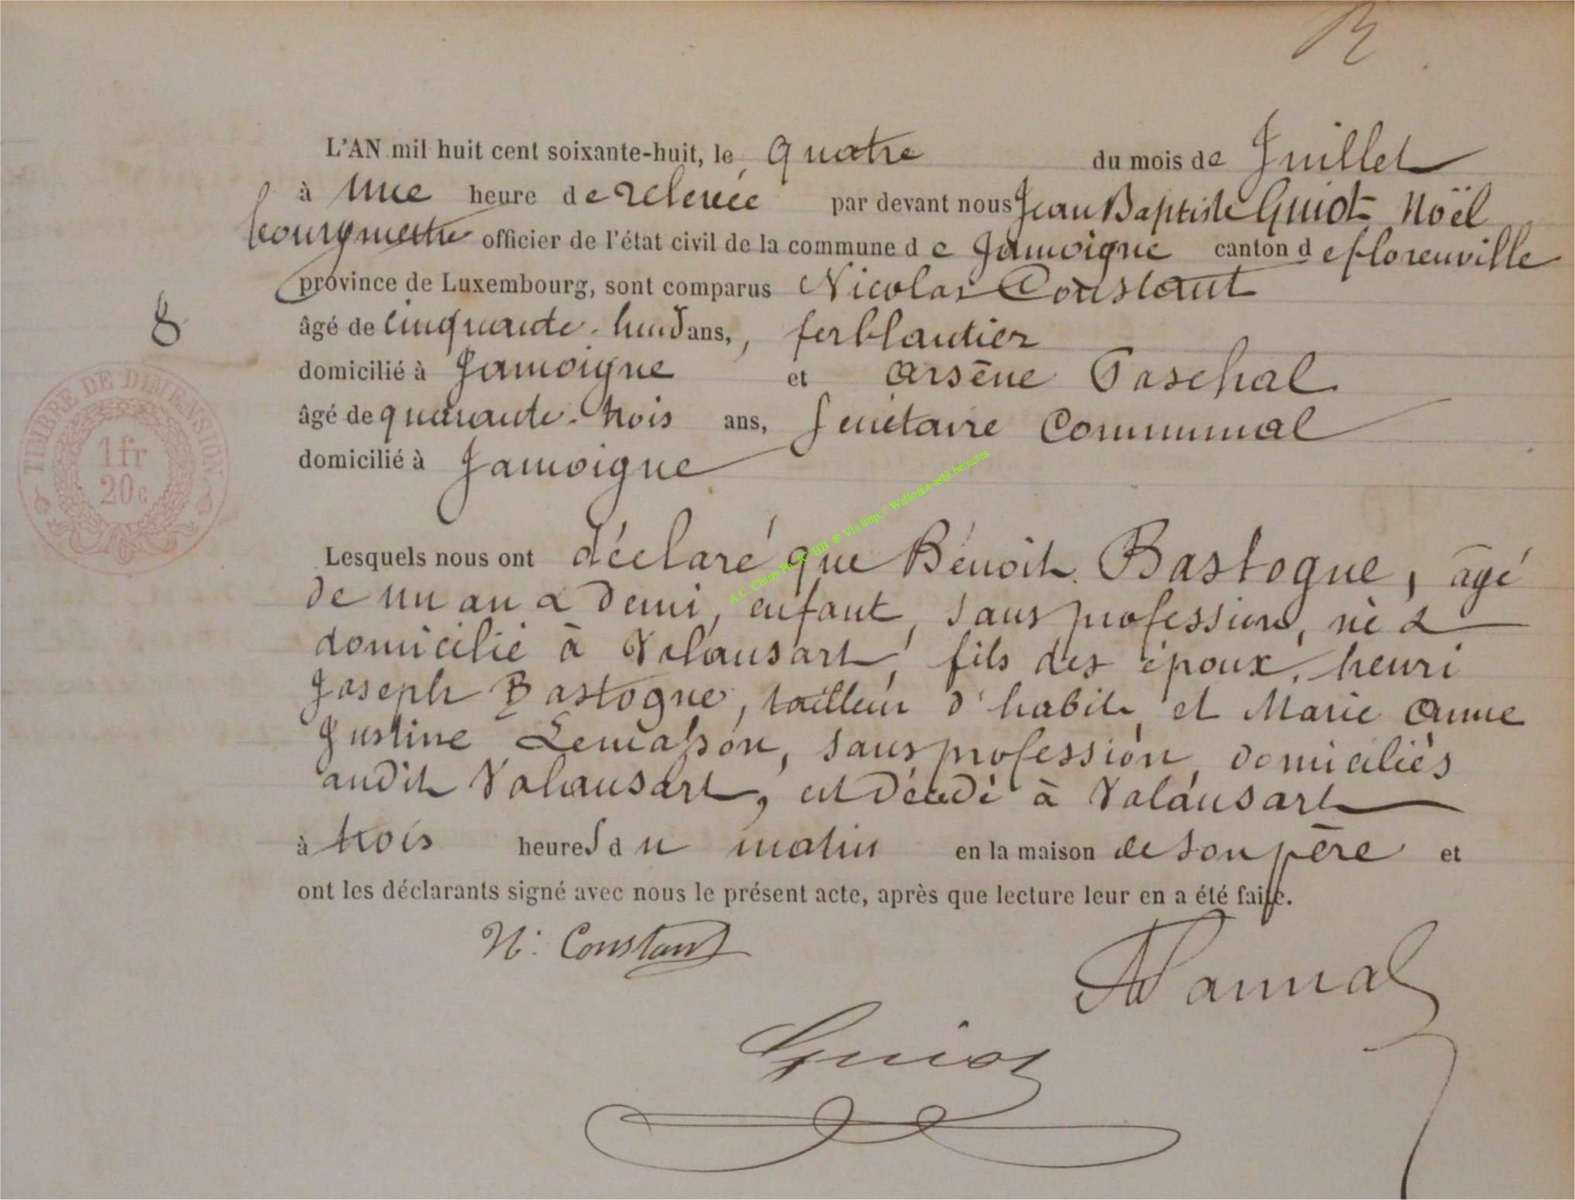 L'AN mil huit cent soixante-huit, le quatre du mois de Juillet
à une heure de relevée par devant nous Jean Baptiste Guiot Noël
bourgmestre officier de l'état civil de la commune de Jamoigne canton de florenville
province de Luxembourg, sont comparus Nicolas Constant
8
âgé de cinquante-huit ans, ferblantier
domicilié à Jamoigne et Arsène Paschal
âgé de quarante-trois ans, secrétaire Communal
domicilié à Jamoigne
TIMBRE DE DIMENSION
1 fr
20 c
Lesquels nous ont déclaré que Bénoit Bastogne, âgé
de un an & demi, enfant, sans profession, né &
domicilié à Valansart, fils des époux, henri
Joseph Bastogne, tailleur d'habits, et Marie Anne
Justine Lemasson, sans profession, domiciliés
audit Valansart, est décédé à Valansart
à trois heures du matin en la maison de son père et
ont les déclarants signé avec nous le présent acte, après que lecture leur en a été faite.
N. Constant
Guiot